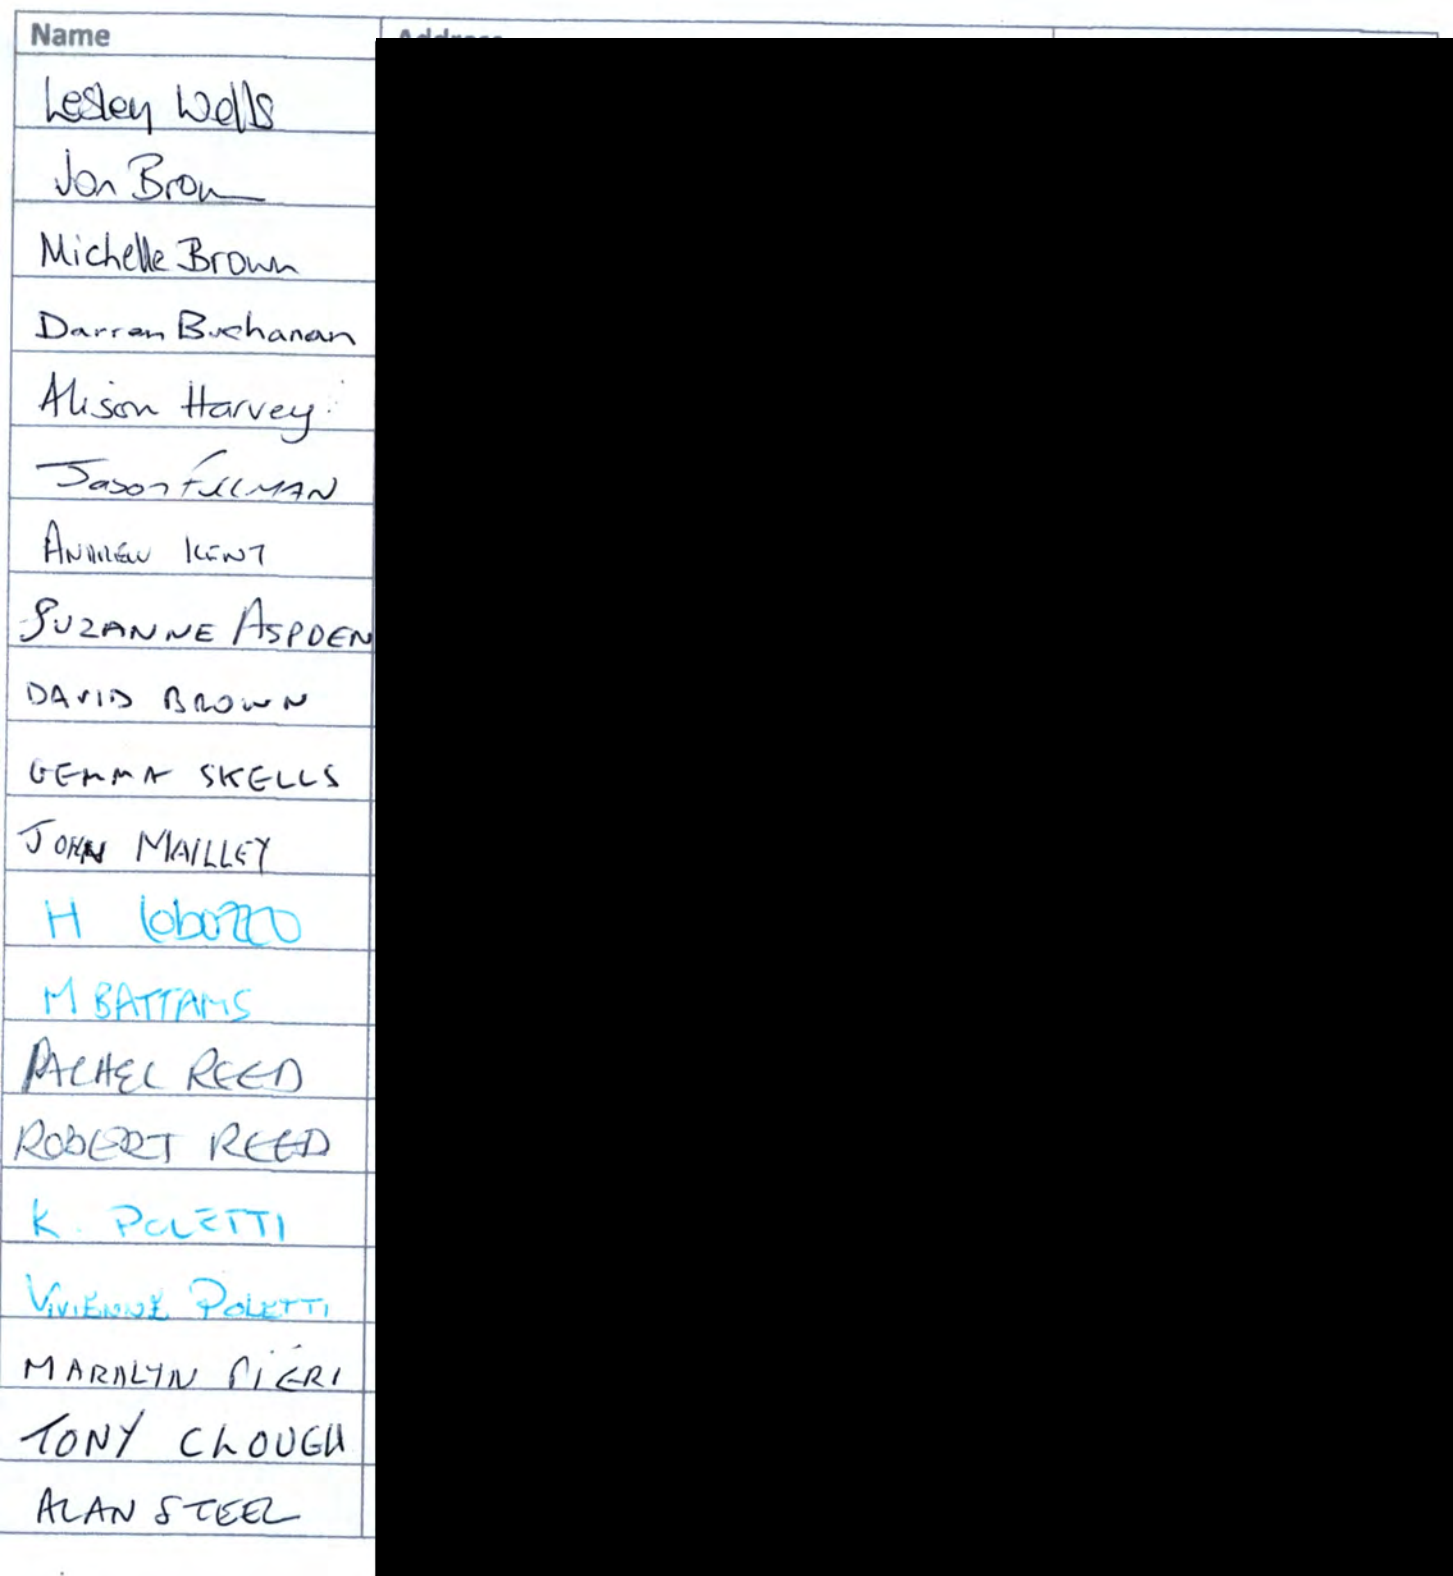 Name
Address
Lesley Wells
Jon Brown
Michelle Brown
Darren Buchanan
Alison Harvey
Jason
ANDREW KENT
SUZANNE ASPDEN
DAVID BROWN
GEMMA SKELLS
JOHN MAILLEY
H Lobozzo
M BATTAMS
RACHEL REED
ROBERT REED
K. POLETTI
VIVIENNE POLETTI
MARALYN PIERI
TONY CLOUGH
ALAN STEEL